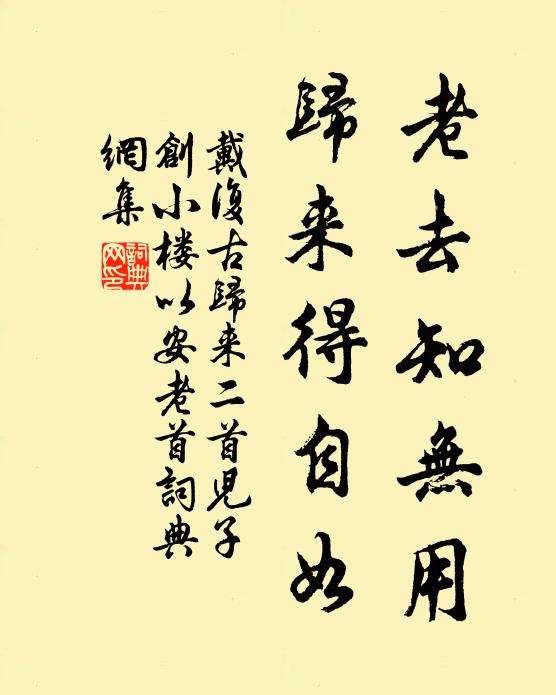 老去知無用
歸来得自如
戴復古歸来二首児子
創小楼以安老首詞典
網集
詞典網印